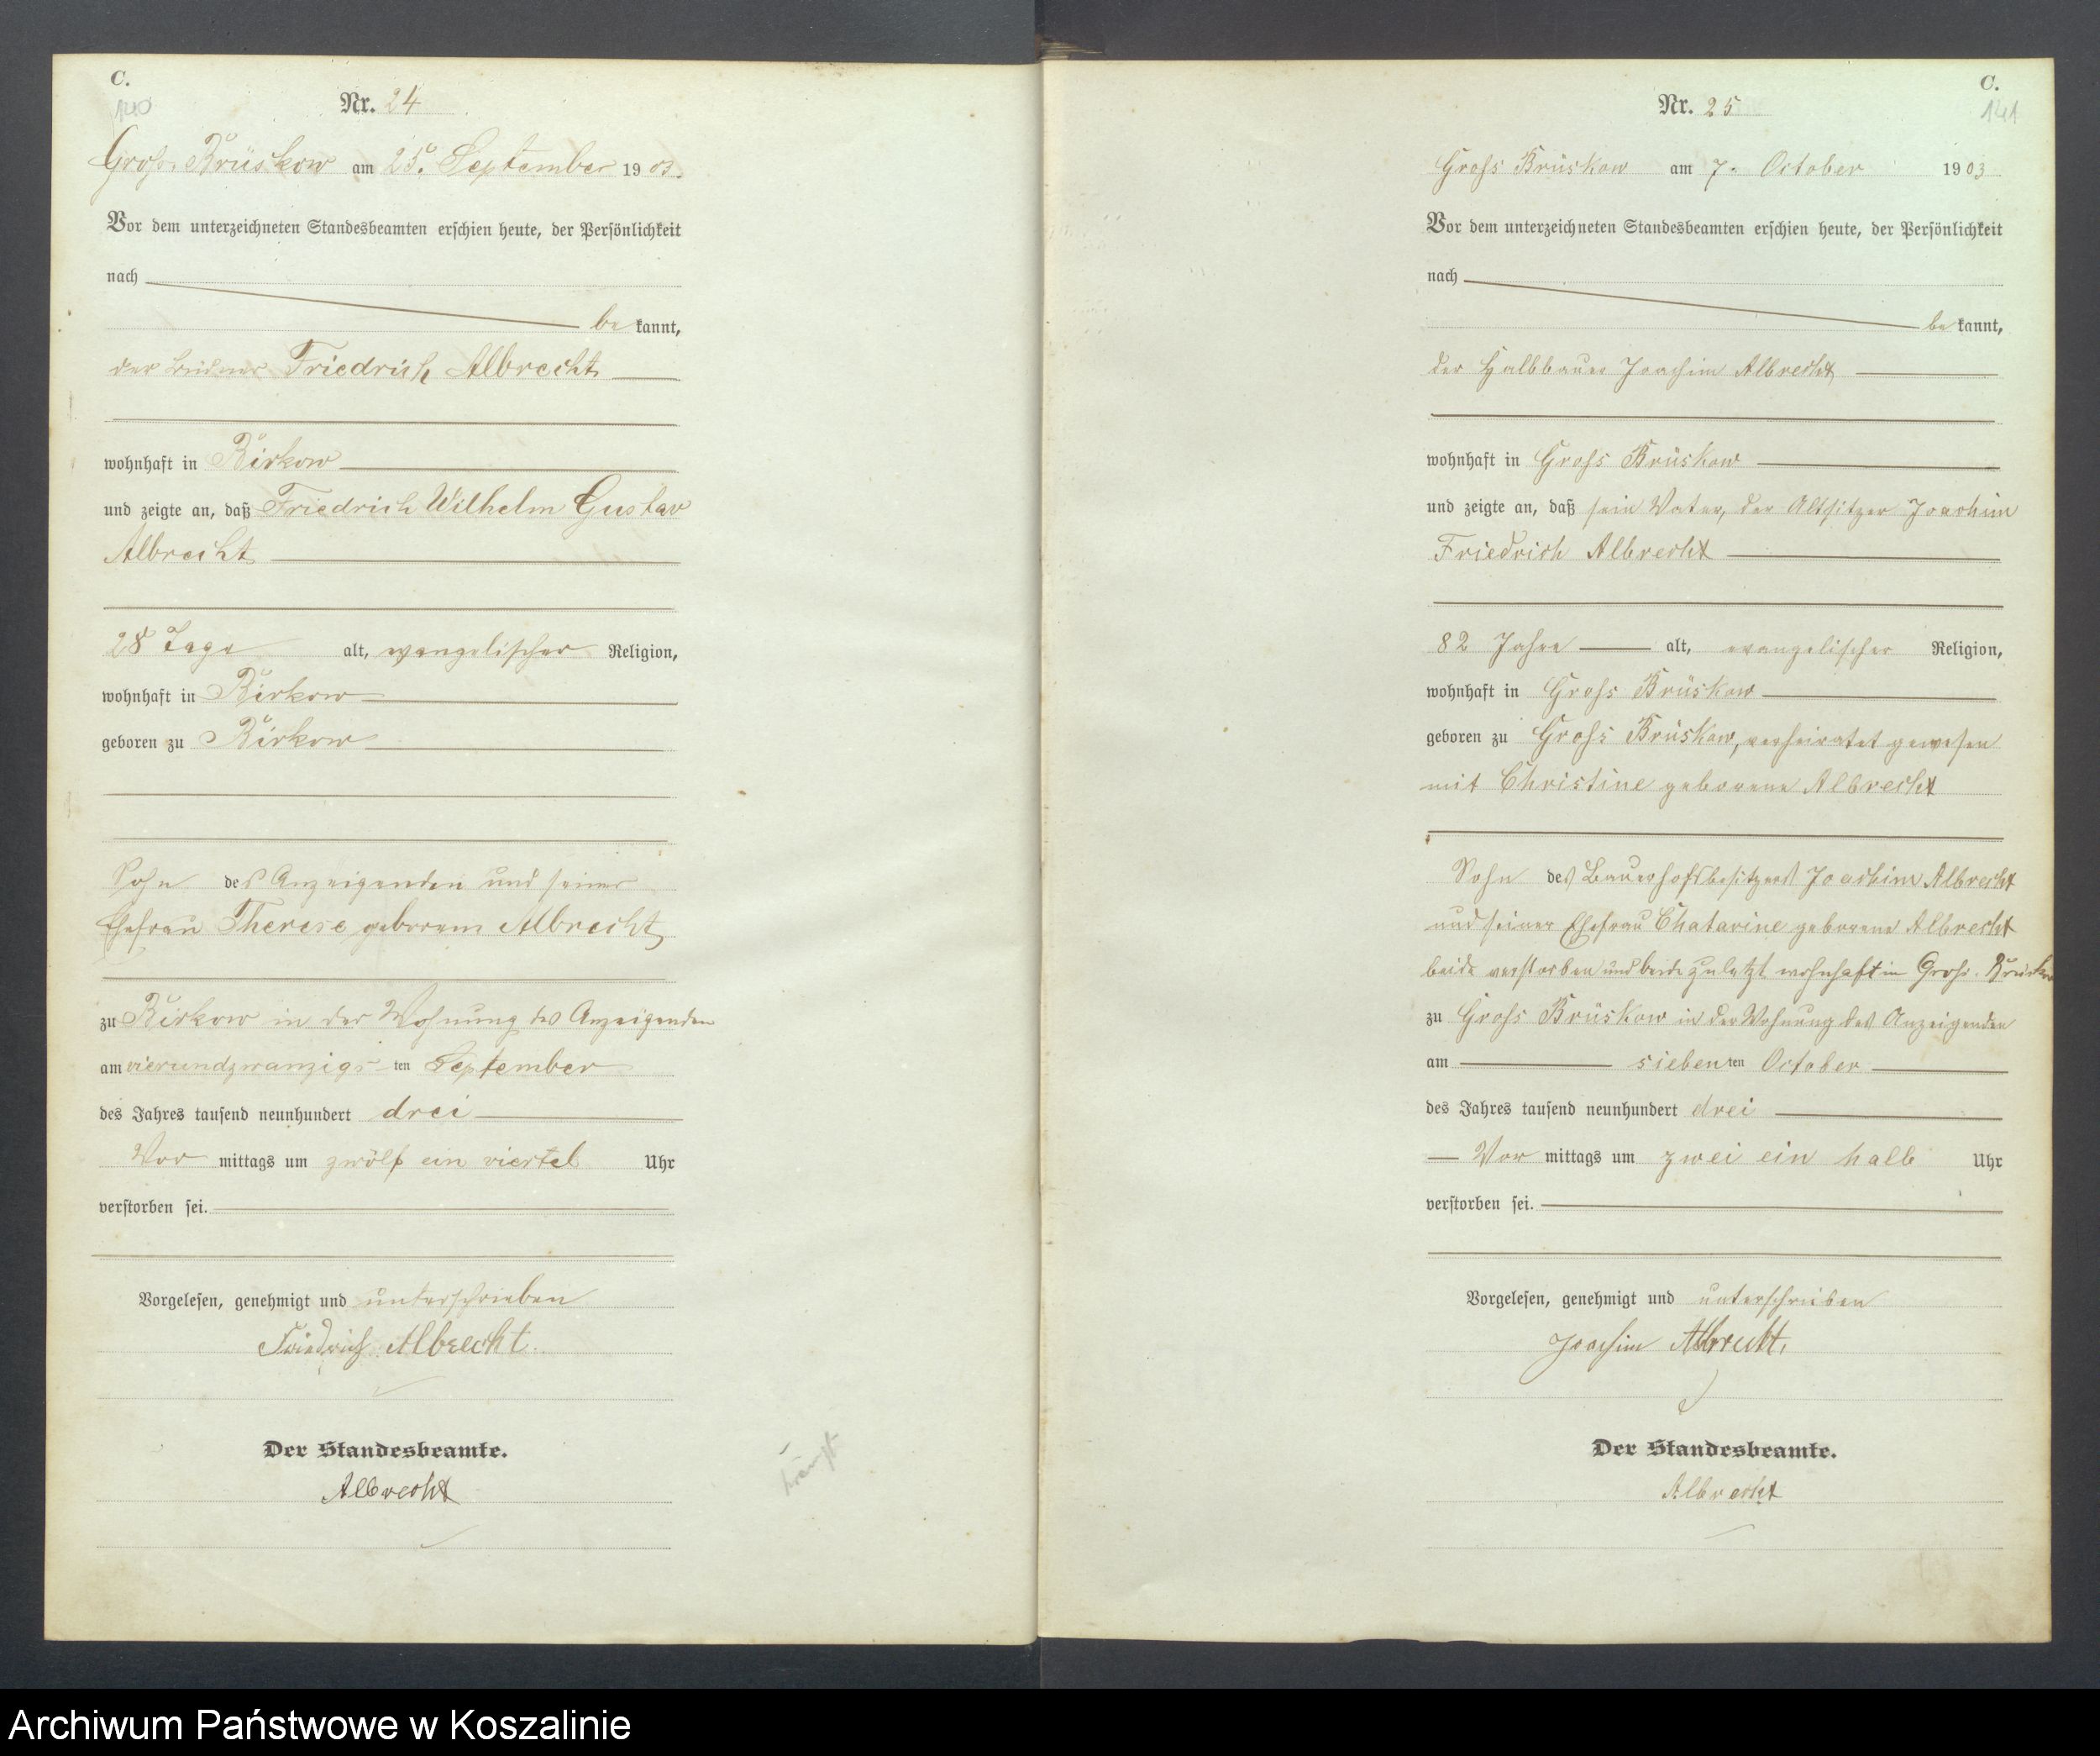 C.
140
Nr. 24
Gross Brüskow am 25. September 1903.
Vor dem unterzeichneten Standesbeamten erschien heute, der Persönlichkeit
nach
bekannt,
der Büdner Friedrich Albrecht
wohnhaft in Birkow
und zeigte an, daß Friedrich Wilhelm Gustav
Albrecht
28 Tage alt, evangelischer Religion,
wohnhaft in Birkow
geboren zu Birkow
Sohn des Anzeigenden und seiner
Ehefrau Therese geborene Albrecht
zu Birkow in der Wohnung des Anzeigenden
am vierundzwanzigsten September
des Jahres tausend neunhundert drei
Vor mittags um zwölf ein viertel Uhr
verstorben sei.
Vorgelesen, genehmigt und unterschrieben
Friedrich Albrecht.
Der Standesbeamte.
Albrecht
C.
141
Nr. 25
Gross Brüskow am 7. October 1903
Vor dem unterzeichneten Standesbeamten erschien heute, der Persönlichkeit
nach
bekannt,
der Halbbauer Joachim Albrecht
wohnhaft in Gross Brüskow
und zeigte an, daß sein Vater, der Altsitzer Joachim
Friedrich Albrecht
82 Jahre alt, evangelischer Religion,
wohnhaft in Gross Brüskow
geboren zu Gross Brüskow, verheiratet gewesen
mit Christine geborene Albrecht
Sohn des Bauerhofsbesitzers Joachim Albrecht
und seiner Ehefrau Chatarine geborene Albrecht
beide verstorben und beide zuletzt wohnhaft in Gross Brüskow
zu Gross Brüskow in der Wohnung des Anzeigenden
am siebenten October
des Jahres tausend neunhundert drei
Vor mittags um zwei ein halb Uhr
verstorben sei.
Vorgelesen, genehmigt und unterschrieben
Joachim Albrecht,
Der Standesbeamte.
Albrecht
Archiwum Państwowe w Koszalinie